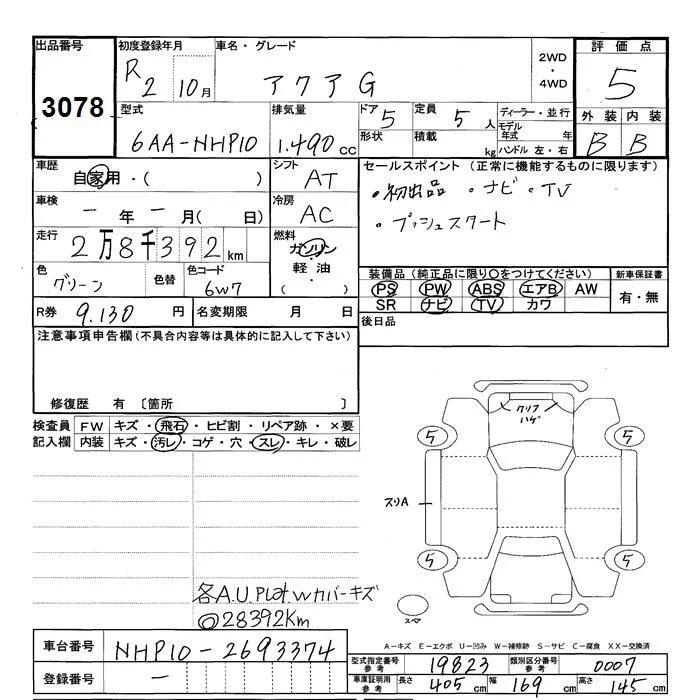 出品番号 初度登録年月 車名・グレード 評価点
3078 R2 10月 アクア G 2WD・4WD 5
型式 排気量 ドア 5 定員 5人 ディーラー・並行 外装 内装
6AA-NHP10 1.490cc 形状 積載 kg モデル年式 年 B B
ハンドル 左・右
車歴 自家用・( ) シフト AT セールスポイント (正常に機能するものに限ります)
車検 ー年ー月( 日) 冷房 AC ・初出品 ・ナビ・TV
走行 2万8千392km 燃料 ガソリン・軽油・( ) ・プッシュスタート
色 グリーン 色替 色コード 6W7 装備品 (純正品に限り○をつけてください) 新車保証書
PS PW ABS エアB AW 有・無
SR ナビ TV カワ
R券 9.130円 名変期限 月 日 後日品
注意事項申告欄 (不具合内容等は具体的に記入して下さい)
修復歴 有 〔箇所 〕
検査員記入欄 FW キズ・飛石・ヒビ割・リペア跡・×要
内装 キズ・汚レ・コゲ・穴・スレ・キレ・破レ
クリアハゲ
5 5
スリA
5 5
スペア
各A.U.Plat.Wカバーキズ
◎28392Km
A-キズ E-エクボ U-凹み W-補修跡 S-サビ C-腐食 XX-交換済
車台番号 NHP10-2693374 型式指定番号 参考 19823 類別区分番号 参考 0007
登録番号 ー 車庫証明用 参考 長さ 405cm 幅 169cm 高さ 145cm